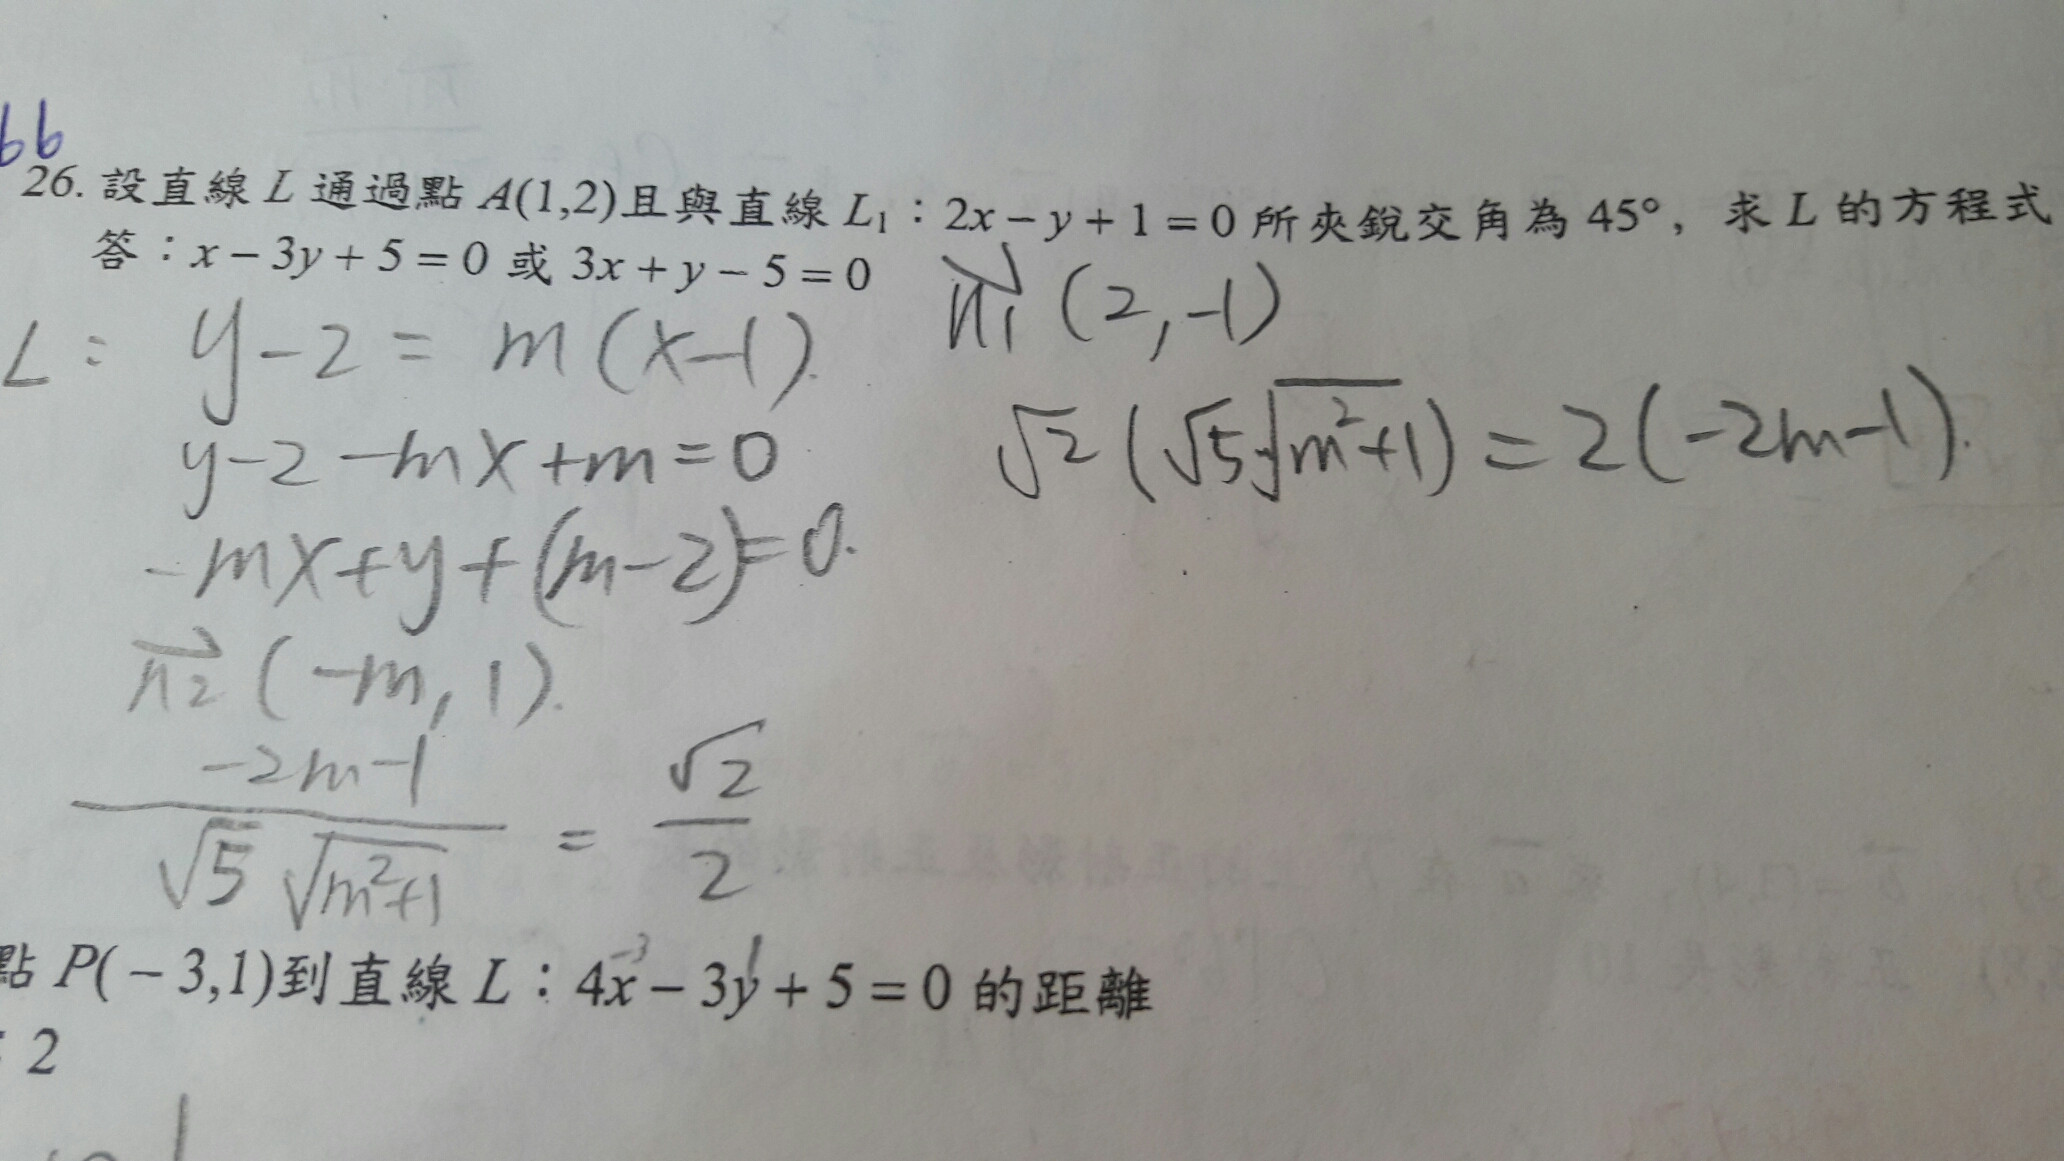 66
26. 設直線 L 通過點 A(1,2)且與直線 L₁：2x－y＋1＝0 所夾銳交角為 45°，求 L 的方程式
答：x－3y＋5＝0 或 3x＋y－5＝0
n₁⃗ (2,-1)
L： y-2 = m(x-1).
√2(√5·√(m²+1)) = 2(-2m-1).
y-2-mx+m=0
-mx+y+(m-2)=0.
n₂⃗ (-m, 1).
(-2m-1)/(√5 √(m²+1)) = √2/2
-3 1
點 P(－3,1)到直線 L：4x－3y＋5＝0 的距離
：2